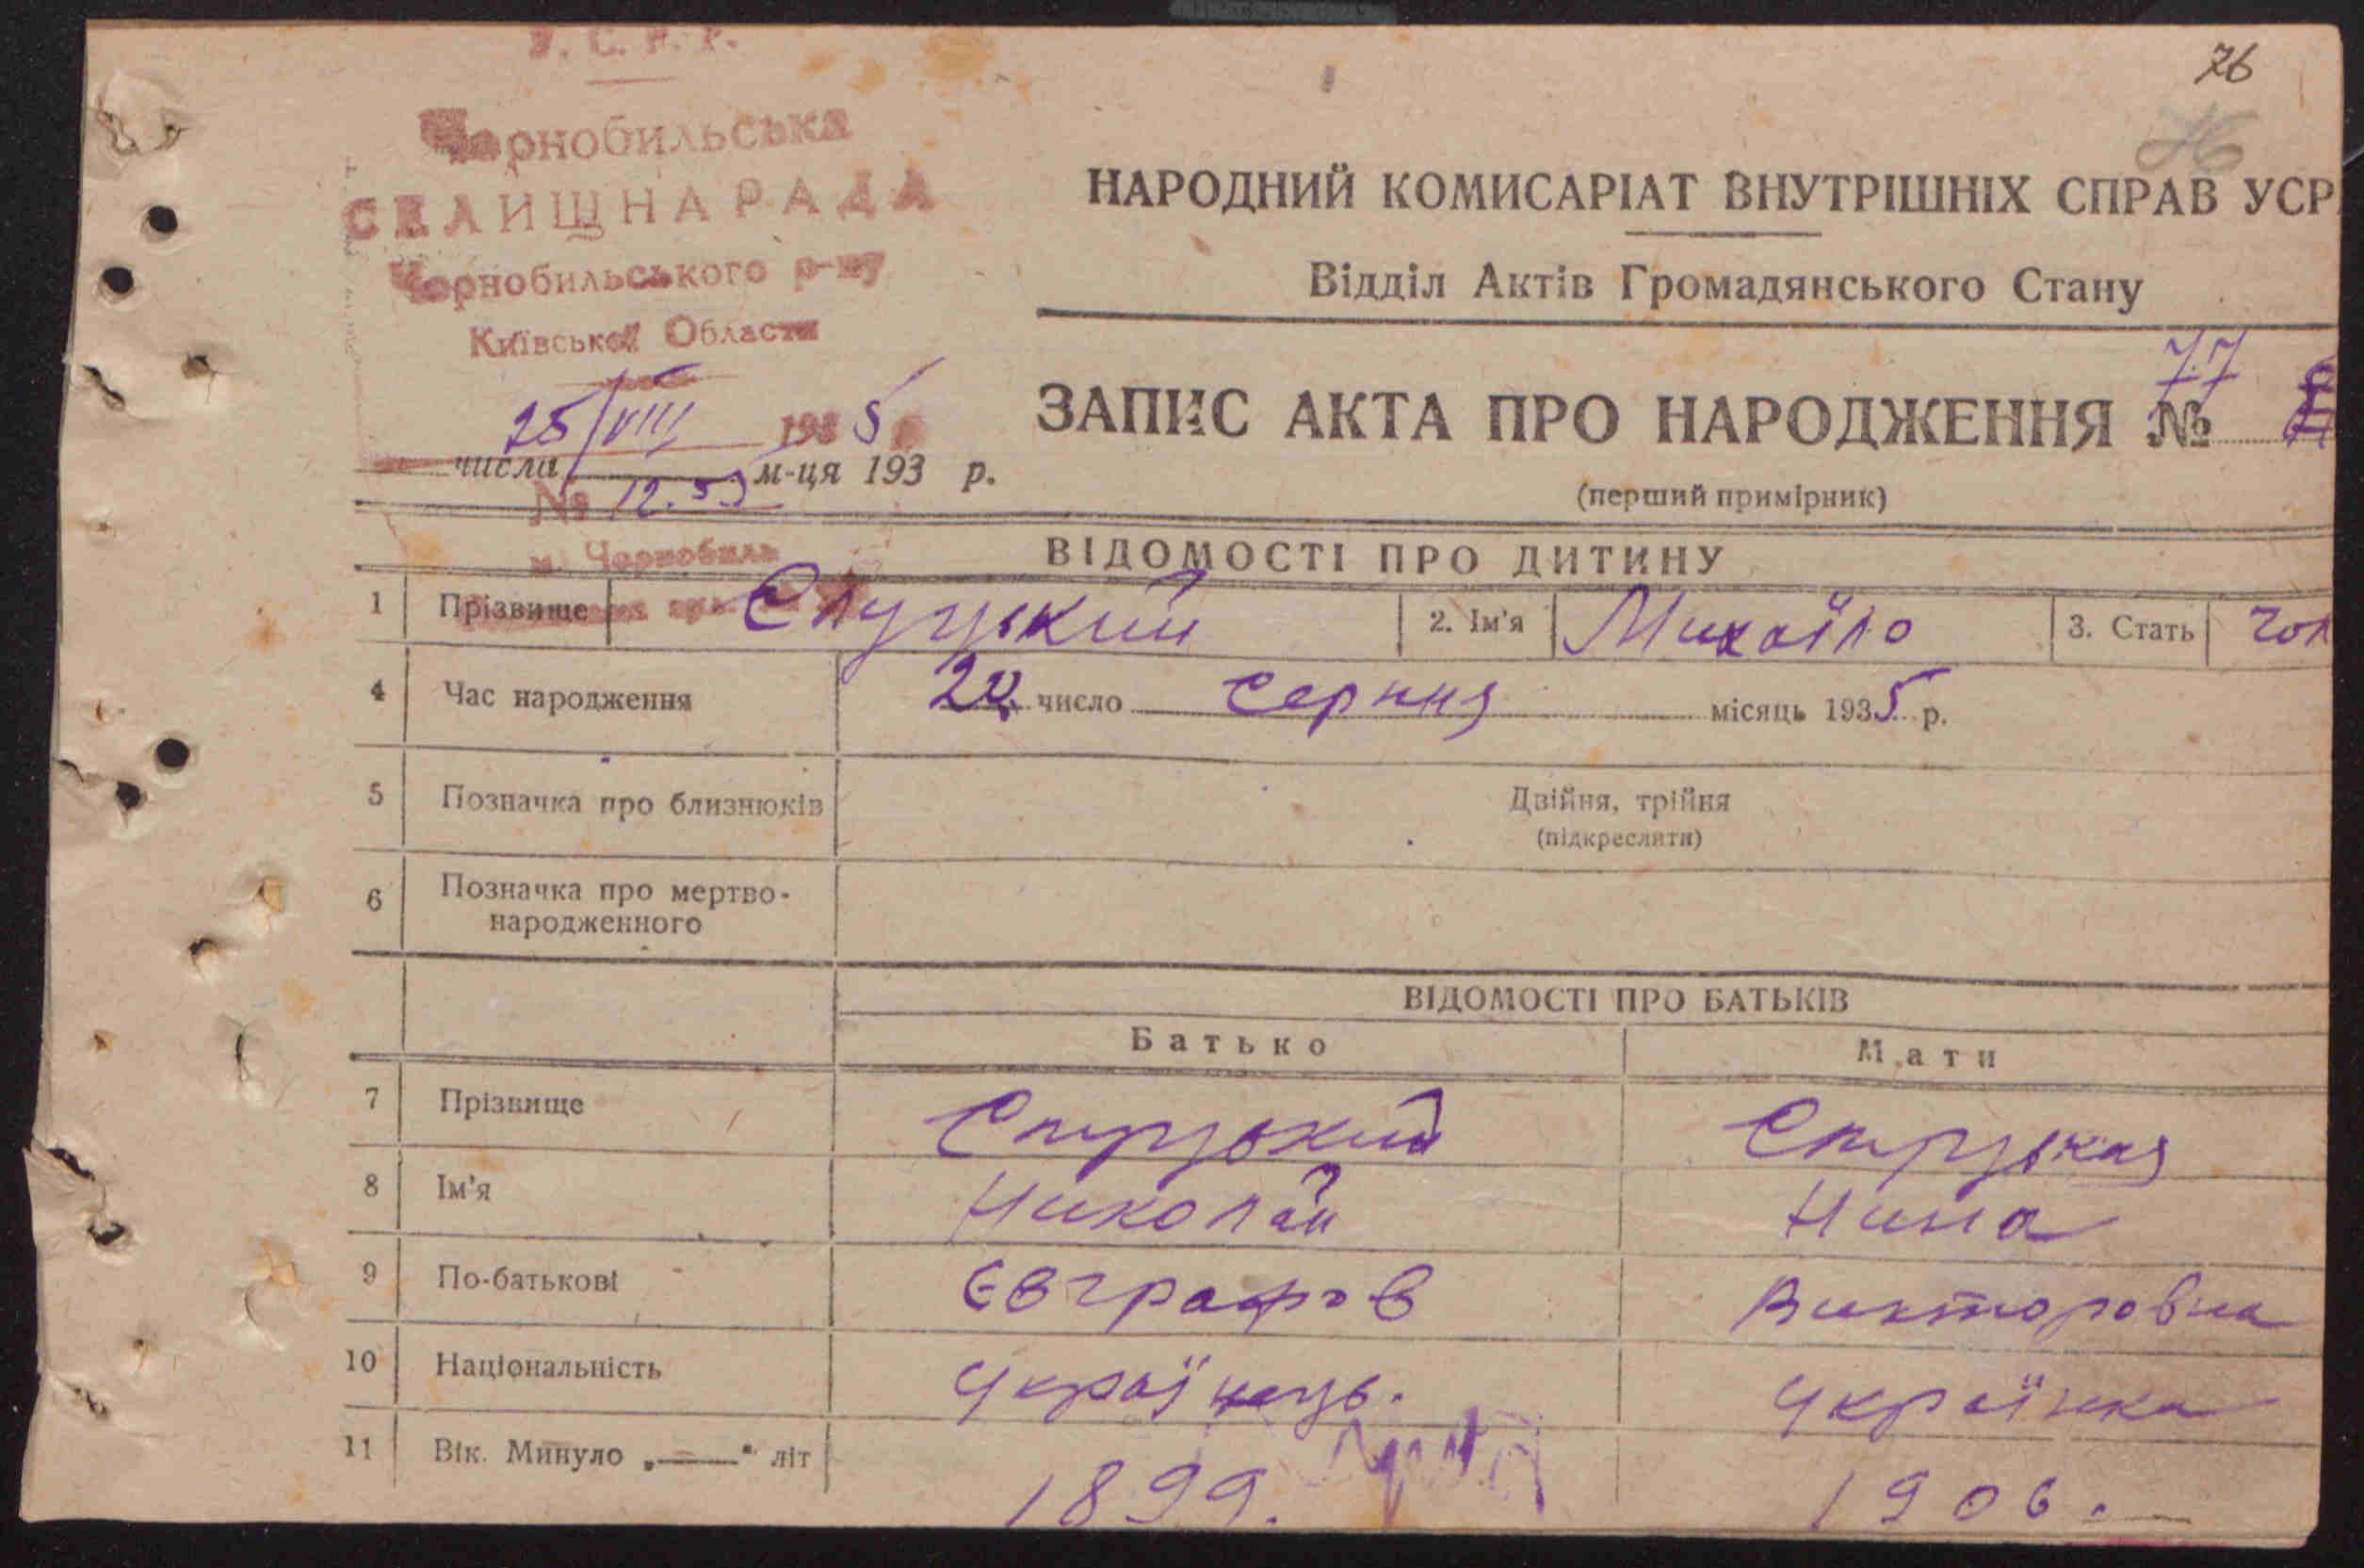 У. С. Р. Р.
76
76
Чорнобильська
СЕЛИЩНА РАДА
Чорнобильського р-ну
Київської Области
НАРОДНИЙ КОМИСАРІАТ ВНУТРІШНІХ СПРАВ УСР
Відділ Актів Громадянського Стану
25/VIII 1935
числа м-ця 193 р.
№ 12.53
м. Чорнобиль
77
ЗАПИС АКТА ПРО НАРОДЖЕННЯ №
(перший примірник)
ВІДОМОСТІ ПРО ДИТИНУ
1 Прізвище Слуцький 2. Ім'я Михайло 3. Стать чол
4 Час народження 20 число Серпня місяць 1935 р.
5 Позначка про близнюків Двійня, трійня
(підкреслити)
6 Позначка про мертво-
народженного
ВІДОМОСТІ ПРО БАТЬКІВ
Батько Мати
7 Прізвище Слуцький Слуцькая
8 Ім'я Николай Нина
9 По-батькові Євграфов Викторовна
10 Національність Українець. Українка
11 Вік. Минуло „——“ літ 1899. 1906.